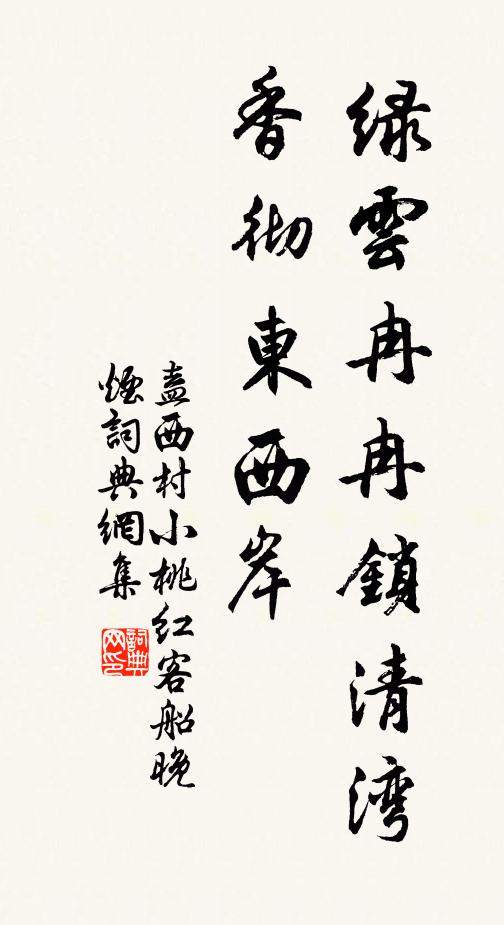 绿雲冉冉鎖清湾
香彻東西岸
盍西村小桃红客船晚
煙詞典網集
詞典网印